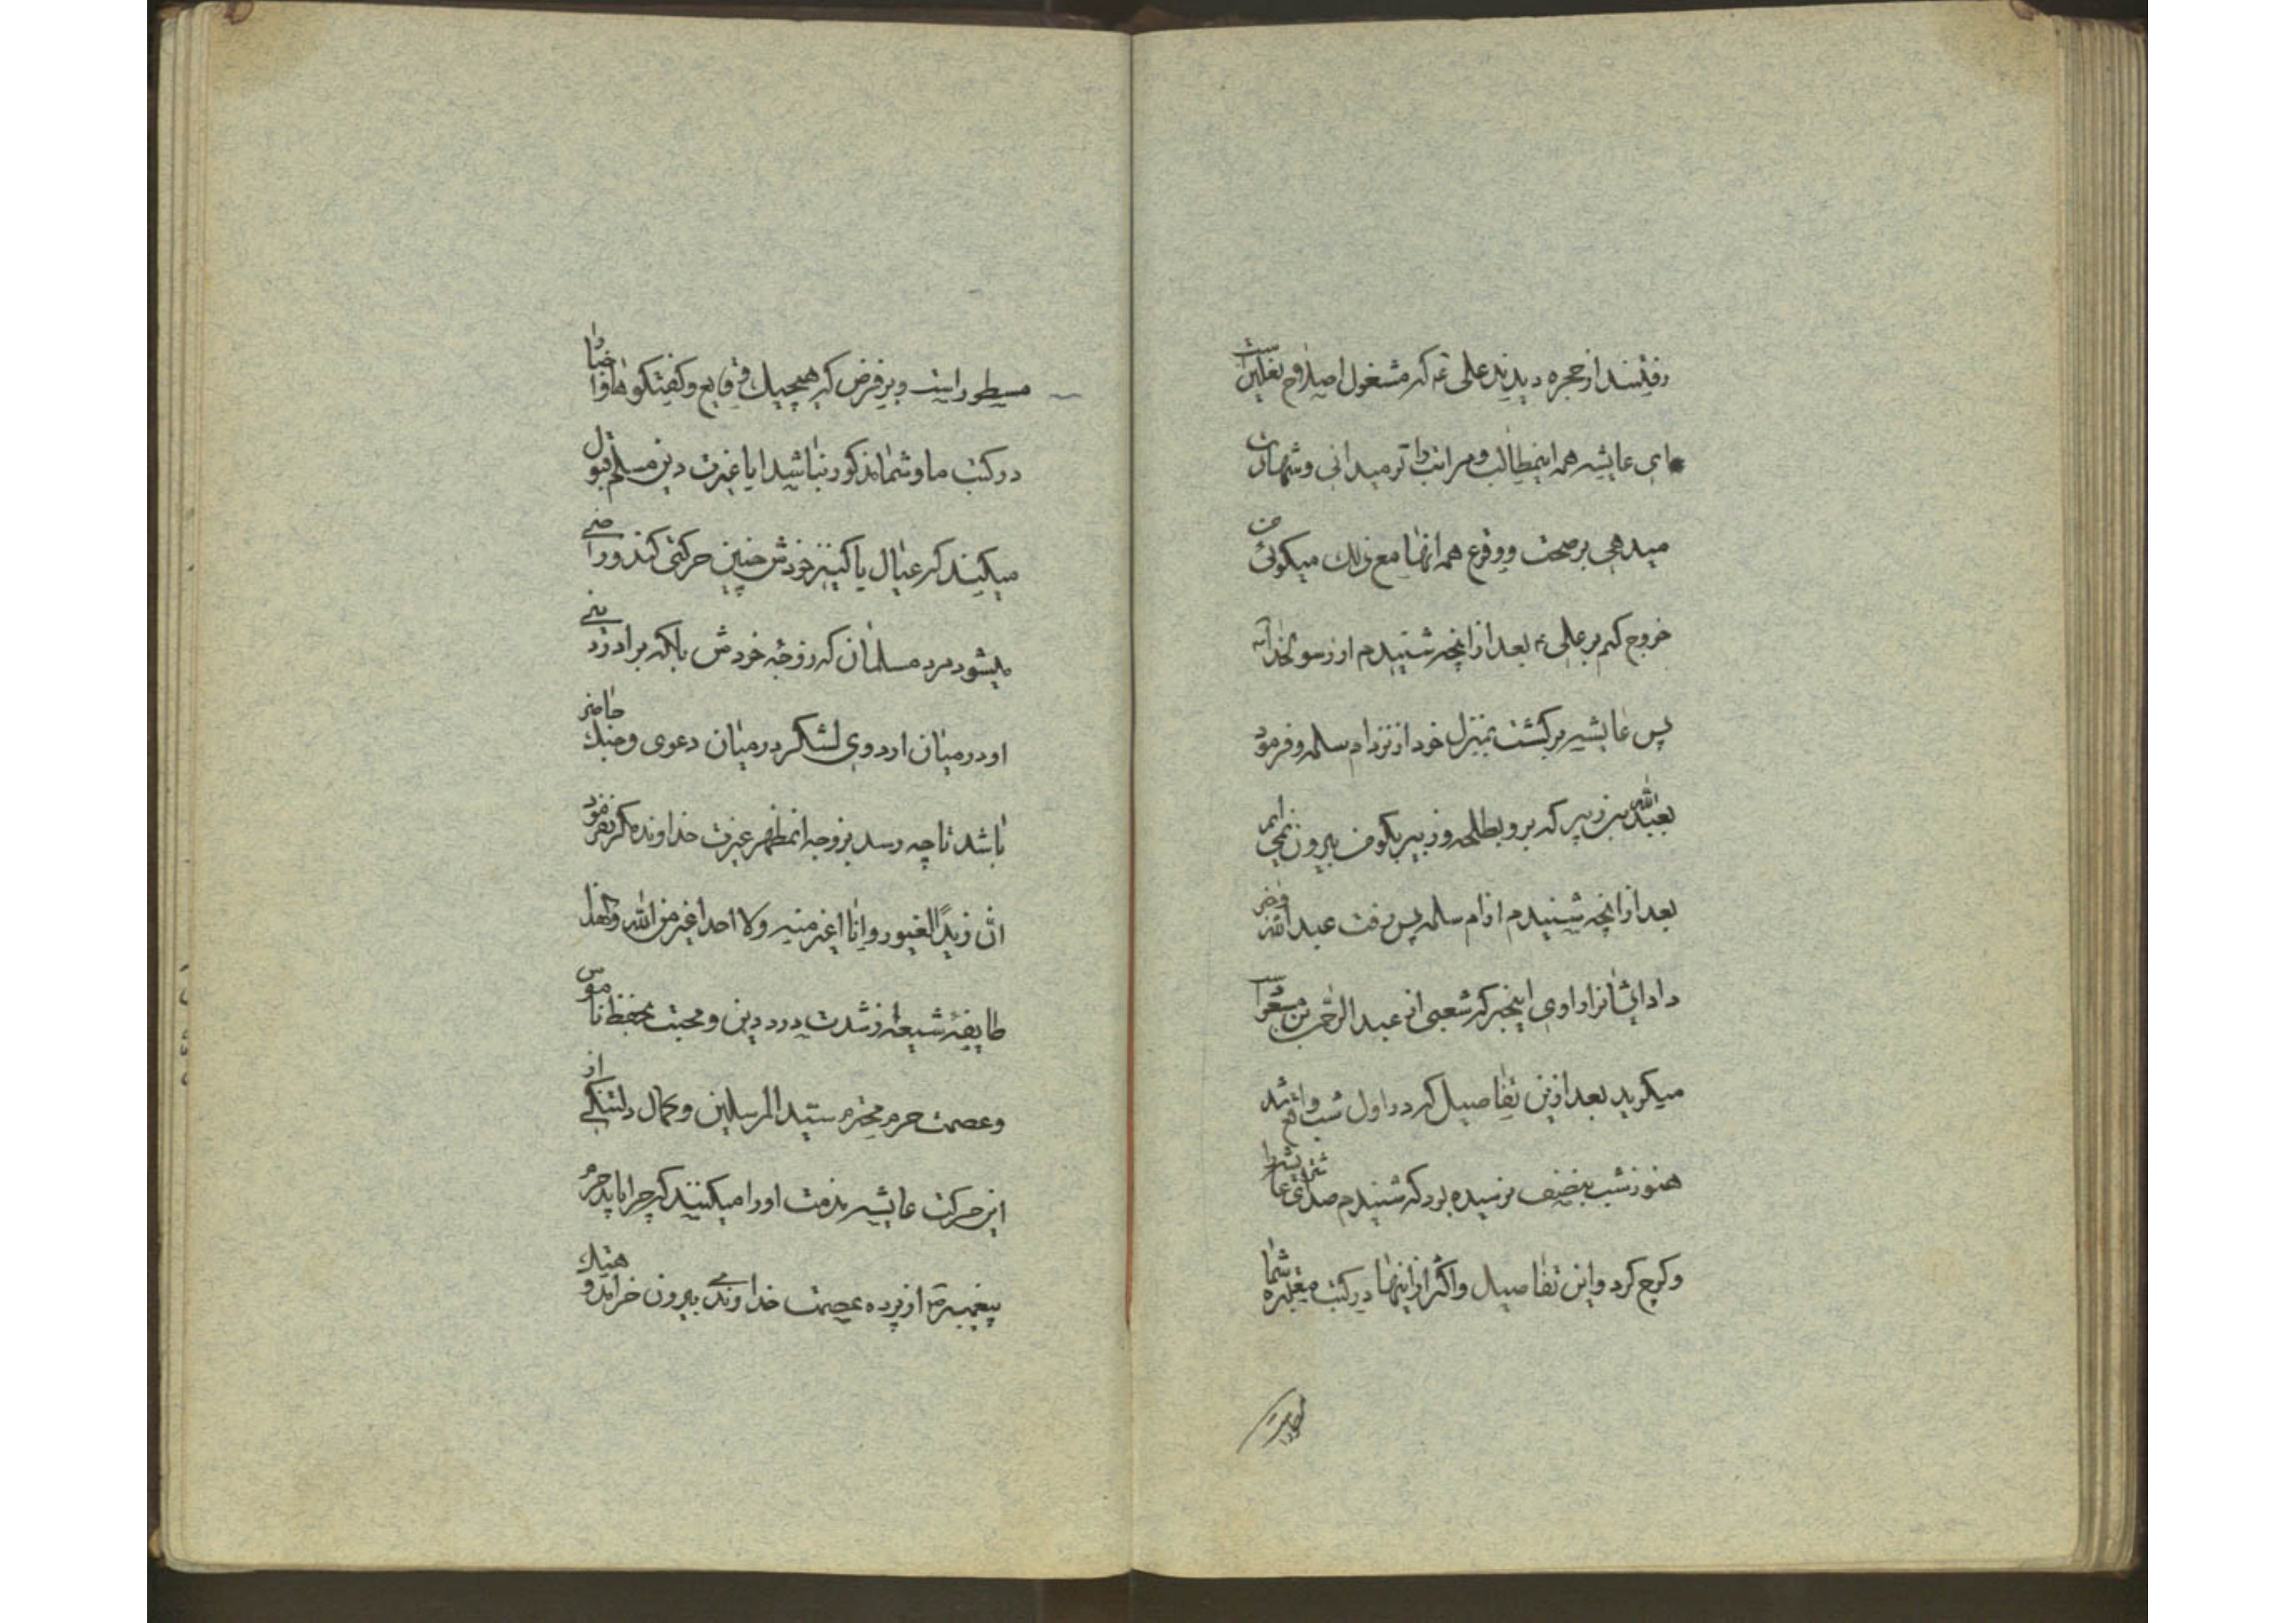 رفتند از حجره دیدند علی ع که مشغول اصلاح نعلین است
ای عایشه همه اینمطالب و مراتب را تو میدانی و شهادت
میدهی بر صحت و وقوع همه انها مع ذلک میگوئی من
خروج کنم بر علی ع بعد از انچه شنیدم از رسولخدا ص
پس عایشه برگشت بمنزل خود از نزد ام سلمه و فرمود
بعبدالله بن زبیر که برو بطلحه و زبیر بگو من بیرون نمی ایم
بعد از انچه شنیدم از ام سلمه پس رفت عبدالله و خبر
داد ایشانرا راوی اینخبر که شعبی از عبدالرحمن بن مسعود است
میگوید بعد ازین تفاصیل که در اول شب واقع شد
هنوز شب بنصف نرسیده بود که شنیدم صدای شتر عایشه را
و کوچ کرد و این تفاصیل و اکثر از اینها در کتب معتبره شما
مسطور است و بر فرض که هیچیک وقایع و گفتگوها و اوضاع
در کتب ما و شما مذکور نباشد ایا غیرت دین مسلم قبول
میکند که عیال یا کنیز خودش چنین حرکتی کند و راضی
میشود مرد مسلمان که زوجه خودش بلکه برادر دینی
او در میان اردوی لشکر در میان دعوی و جنگ حاضر
باشد تا چه رسد بزوجه انمظهر غیرت خداوند مگر نفرمود
ان زیداً لغیور و انا اغیر منه و لا احد اغیر من الله و لهذا
طایفه شیعه از شدت درد دین و محبت بحفظ ناموس
و عصمت حرم محترم سید المرسلین و کمال دلتنگی از
این حرکت عایشه مذمت او را میکنند که چرا باید حرم
پیغمبر ص از پرده عصمت خداوندی بیرون خرامد و هتک